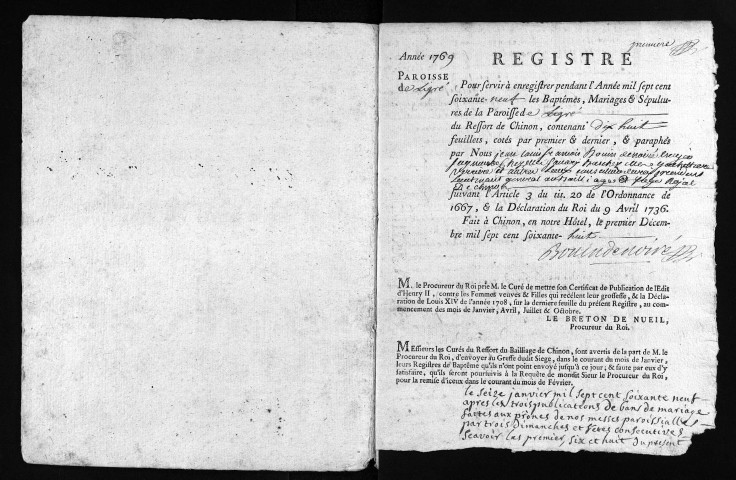 premiere
Année 1769
REGISTRE
PAROISSE
de Ligré
Pour servir à enregistrer pendant l'Année mil sept cent
soixante-neuf les Baptêmes, Mariages & Sépultu-
res de la Paroisse de Ligré
du Ressort de Chinon, contenant dix huit
feuillets, cotés par premier & dernier, & paraphés
par Nous jean louis francois Bouin denoiré
lieutenant general au bailliage et siege Royal
De chinon
suivant l'Article 3 du tit. 20 de l'Ordonnance de
1667, & la Déclaration du Roi du 9 Avril 1736.
Fait à Chinon, en notre Hôtel, le premier Décem-
bre mil sept cent soixante-huit
Bouin de noiré
M. le Procureur du Roi prie M. le Curé de mettre son Certificat de Publication de l'Edit
d'Henry II, contre les Femmes veuves & Filles qui recélent leur grossesse, & la Décla-
ration de Louis XIV de l'année 1708, sur la derniere feuille du présent Registre, au com-
mencement des mois de Janvier, Avril, Juillet & Octobre.
LE BRETON DE NUEIL,
Procureur du Roi.
MEssieurs les Curés du Ressort du Bailliage de Chinon, sont avertis de la part de M. le
Procureur du Roi, d'envoyer au Greffe dudit Siege, dans le courant du mois de Janvier,
leurs Registres de Baptême qu'ils n'ont point envoyé jusqu'à ce jour; & faute par eux d'y
satisfaire, qu'ils seront poursuivis à la Requête de mondit Sieur le Procureur du Roi,
pour la remise d'iceux dans le courant du mois de Février.
le seize janvier mil sept cent soixante neuf
apres les trois publications de bans de mariage
faittes aux prônes de nos messes paroissialles
par trois dimanches et fêtes consecutives
scavoir les premier, six et huit du present